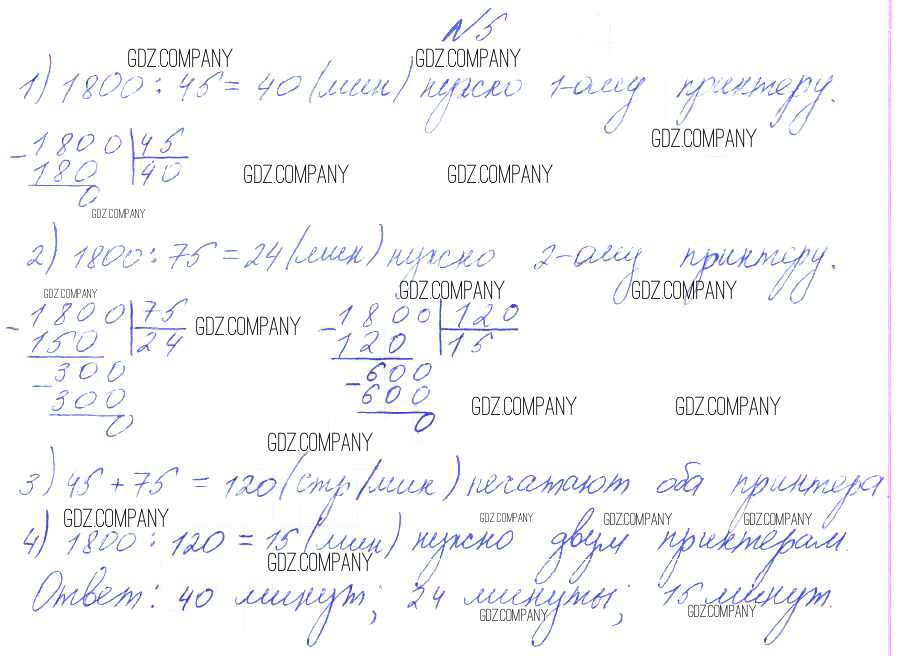 №5
GDZ.COMPANY GDZ.COMPANY
1) 1800 : 45 = 40 (мин) нужно 1-ому принтеру.
GDZ.COMPANY
- 1800 | 45
180 | 40
0
GDZ.COMPANY GDZ.COMPANY
GDZ.COMPANY
2) 1800 : 75 = 24 (мин) нужно 2-ому принтеру.
GDZ.COMPANY GDZ.COMPANY GDZ.COMPANY
- 1800 | 75
150 | 24
- 300
300
0
GDZ.COMPANY
- 1800 | 120
120 | 15
- 600
600
0
GDZ.COMPANY GDZ.COMPANY
GDZ.COMPANY
3) 45 + 75 = 120 (стр/мин) печатают оба принтера
GDZ.COMPANY GDZ.COMPANY GDZ.COMPANY GDZ.COMPANY
4) 1800 : 120 = 15 (мин) нужно двум принтерам.
GDZ.COMPANY
Ответ: 40 минут; 24 минуты; 15 минут.
GDZ.COMPANY GDZ.COMPANY